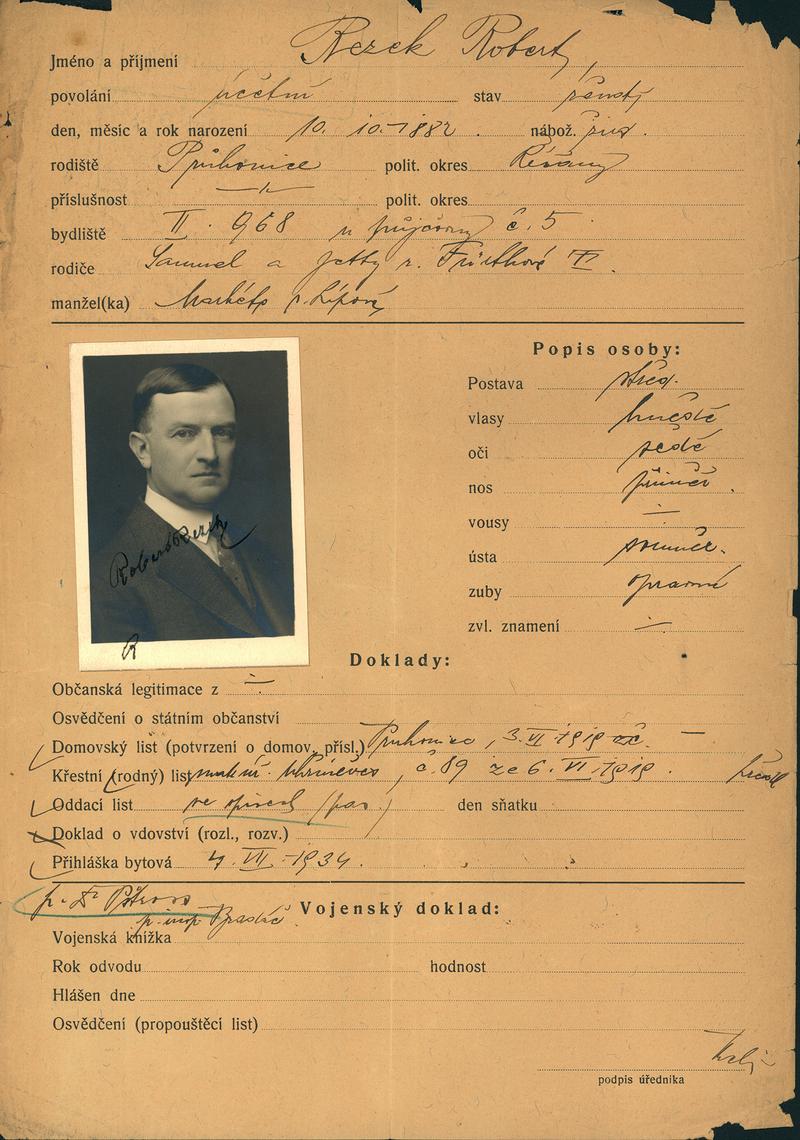 Jméno a příjmení Rezek Robert,
povolání účetní stav ženatý
den, měsíc a rok narození 10. 10. 1882. nábož. žid.
rodiště Průhonice polit. okres Říčany
příslušnost —„— polit. okres
bydliště II. 968 u půjčovny č. 5
rodiče Samuel a Jetty r.
manžel(ka) Markéta r. Lípová
Popis osoby:
Postava střed.
vlasy hnědé
oči šedé
nos přiměř.
vousy —
ústa souměr.
zuby
zvl. znamení —
Robert Rezek
R
Doklady:
Občanská legitimace z —
Osvědčení o státním občanství
Domovský list (potvrzení o domov. přísl.) Průhonice, 3. VI. 1919 —
Křestní (rodný) list č. 89 ze 6. VI. 1919.
Oddací list ve spisech (pas) den sňatku
Doklad o vdovství (rozl., rozv.)
Přihláška bytová 4. VII. 1934.
Vojenský doklad:
Vojenská knížka
Rok odvodu hodnost
Hlášen dne
Osvědčení (propouštěcí list)
podpis úředníka